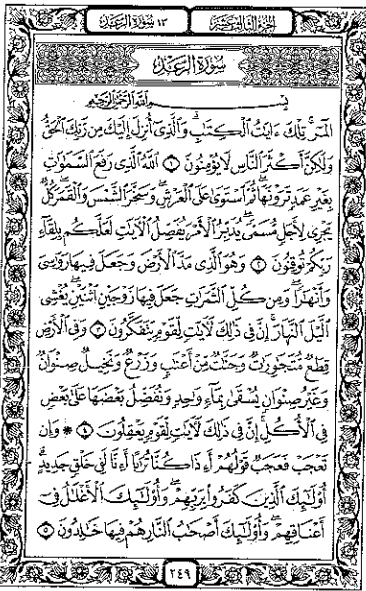 الجزء الثالث عشر
١٣ سورة الرعد
سورة الرعد
بسم الله الرحمن الرحيم
الٓمٓر تِلْكَ ءَايَٰتُ ٱلْكِتَٰبِ وَٱلَّذِىٓ أُنزِلَ إِلَيْكَ مِن رَّبِّكَ ٱلْحَقُّ
وَلَٰكِنَّ أَكْثَرَ ٱلنَّاسِ لَا يُؤْمِنُونَ ١ ٱللَّهُ ٱلَّذِى رَفَعَ ٱلسَّمَٰوَٰتِ
بِغَيْرِ عَمَدٍ تَرَوْنَهَا ثُمَّ ٱسْتَوَىٰ عَلَى ٱلْعَرْشِ وَسَخَّرَ ٱلشَّمْسَ وَٱلْقَمَرَ كُلٌّ
يَجْرِى لِأَجَلٍ مُّسَمًّى يُدَبِّرُ ٱلْأَمْرَ يُفَصِّلُ ٱلْءَايَٰتِ لَعَلَّكُم بِلِقَآءِ
رَبِّكُمْ تُوقِنُونَ ٢ وَهُوَ ٱلَّذِى مَدَّ ٱلْأَرْضَ وَجَعَلَ فِيهَا رَوَٰسِىَ
وَأَنْهَٰرًا وَمِن كُلِّ ٱلثَّمَرَٰتِ جَعَلَ فِيهَا زَوْجَيْنِ ٱثْنَيْنِ يُغْشِى
ٱلَّيْلَ ٱلنَّهَارَ إِنَّ فِى ذَٰلِكَ لَءَايَٰتٍ لِّقَوْمٍ يَتَفَكَّرُونَ ٣ وَفِى ٱلْأَرْضِ
قِطَعٌ مُّتَجَٰوِرَٰتٌ وَجَنَّٰتٌ مِّنْ أَعْنَٰبٍ وَزَرْعٌ وَنَخِيلٌ صِنْوَانٌ
وَغَيْرُ صِنْوَانٍ يُسْقَىٰ بِمَآءٍ وَٰحِدٍ وَنُفَضِّلُ بَعْضَهَا عَلَىٰ بَعْضٍ
فِى ٱلْأُكُلِ إِنَّ فِى ذَٰلِكَ لَءَايَٰتٍ لِّقَوْمٍ يَعْقِلُونَ ٤ ۞ وَإِن
تَعْجَبْ فَعَجَبٌ قَوْلُهُمْ أَءِذَا كُنَّا تُرَٰبًا أَءِنَّا لَفِى خَلْقٍ جَدِيدٍ
أُو۟لَٰٓئِكَ ٱلَّذِينَ كَفَرُوا۟ بِرَبِّهِمْ وَأُو۟لَٰٓئِكَ ٱلْأَغْلَٰلُ فِىٓ
أَعْنَاقِهِمْ وَأُو۟لَٰٓئِكَ أَصْحَٰبُ ٱلنَّارِ هُمْ فِيهَا خَٰلِدُونَ ٥
٢٤٩